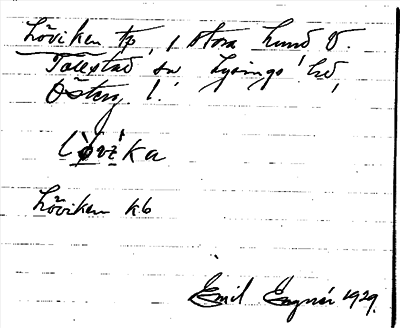 Löviken tp, i Stora Lund V.
Tåkstad sn Lysings hd,
Österg l.
Lövika
Löviken kb
Emil 1929.